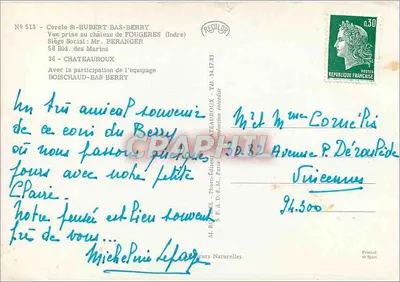 Nº 513 - Cercle St-HUBERT BAS-BERRY
Vue prise au château de FOUGERES (Indre)
Siège Social : Mr. BERANGER
58 Bld. des Marins
36 - CHATEAUROUX
Avec la participation de l'équipage
BOISCHAUD-BAS BERRY
RECOLOR
0,30
POSTES
REPUBLIQUE FRANÇAISE
Un très amical souvenir
de ce coin du Berry
où nous passons quelques
jours avec notre petite
Claire.
Notre pensée est bien souvent
près de vous...
Micheline Lefage
CPARAMA
CHATEAUROUX - TEL. 34.17.85
Couleurs Naturelles
M et Mme Cornélis
30.32 Avenue P. Déroulède
Vincennes
94.300
Printed
in Spain